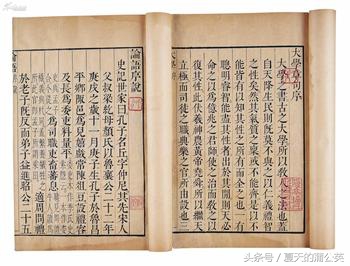 大學章句序
大學之書古之大學所以敎人之法也蓋
自天降生民則既莫不與之以仁義禮智
之性矣然其氣質之稟或不能齊是以不
能皆有以知其性之所有而全之也一有
聰明睿智能盡其性者出於其間則天必
命之以爲億兆之君師使之治而敎之以
復其性此伏羲神農黃帝堯舜所以繼天
立極而司徒之職典樂之官所由設也三
論語序說
史記世家曰孔子名丘字仲尼其先宋人
父叔梁紇母顏氏以魯襄公二十二年
庚戌之歲十一月庚子生孔子於魯昌
平鄉陬邑爲兒嬉戲常陳俎豆設禮容
及長爲委吏料量平
爲司職吏畜蕃息
適周問禮
於老子既反而弟子益進昭公二十五
头条号 / 夏天的蒲公英